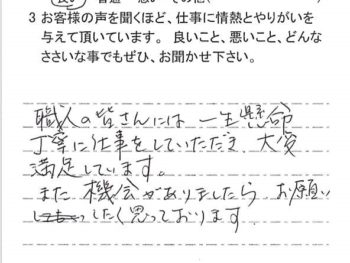 3 お客様の声を聞くほど、仕事に情熱とやりがいを
与えて頂いています。良いこと、悪いこと、どんな
ささいな事でもぜひ、お聞かせ下さい。
職人の皆さんには一生懸命
丁寧に仕事をしていただき、大変
満足しています。
また機会がありましたら、お願い
したく思っております。